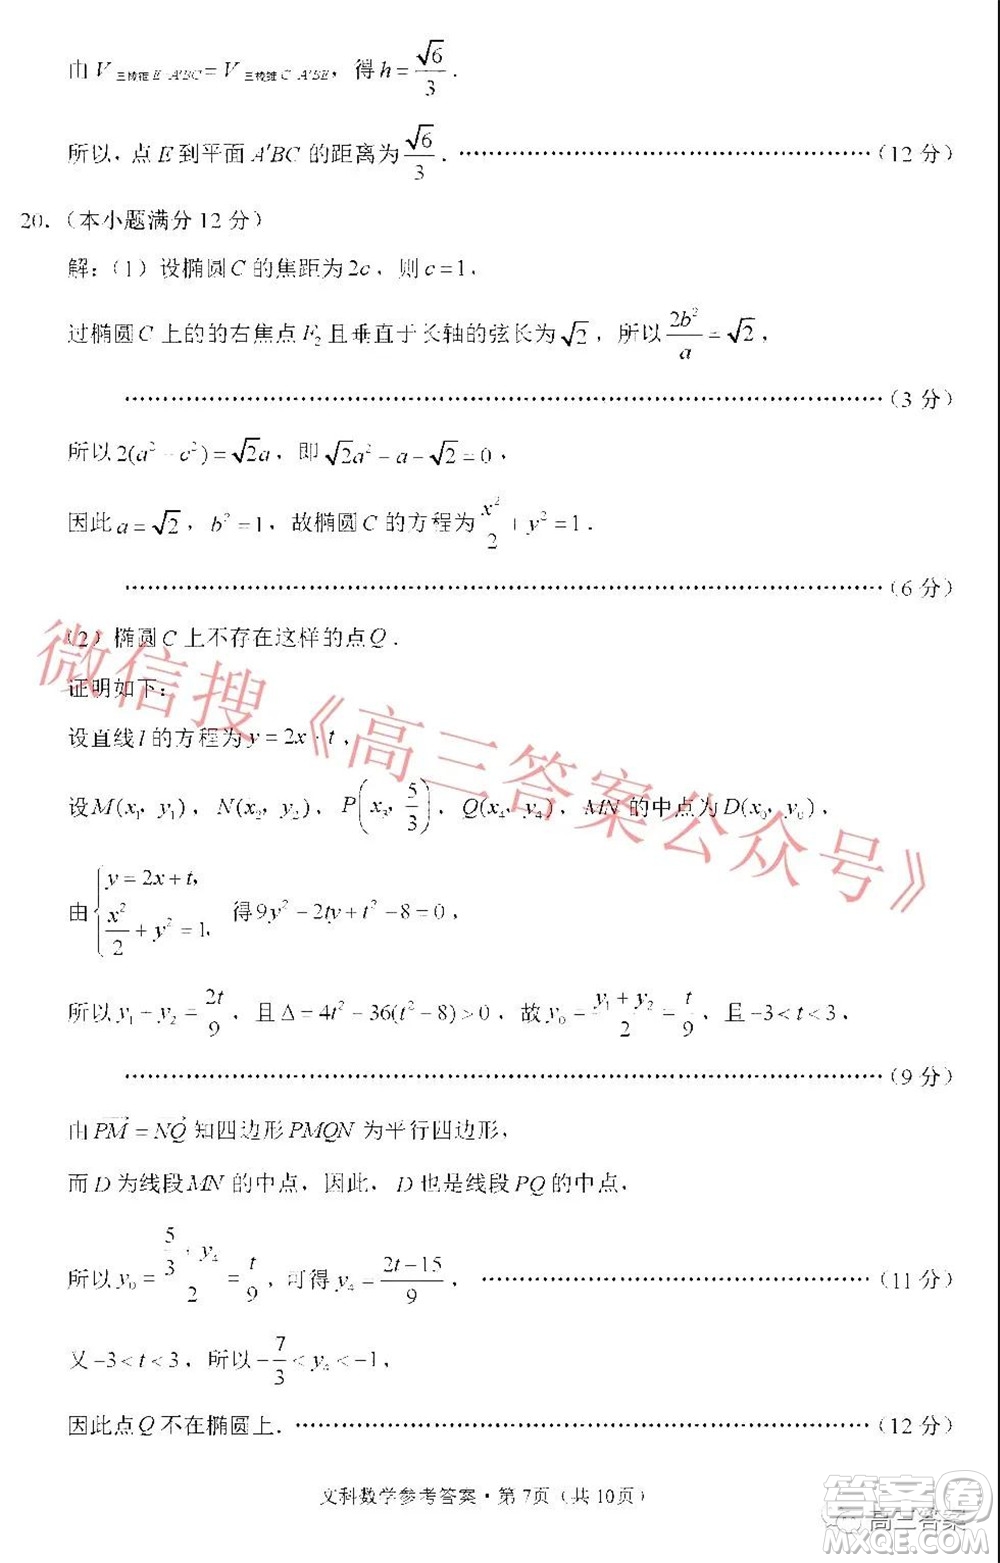 由V三棱锥E-A′BC=V三棱锥C-A′BE，得h=√6/3．
所以，点E到平面A′BC的距离为√6/3．……………………（12分）
20．（本小题满分12分）
解：（1）设椭圆C的焦距为2c，则c=1，
过椭圆C上的的右焦点F₂且垂直于长轴的弦长为√2，所以2b²/a=√2，
……………………（3分）
所以2(a²-c²)=√2a，即√2a²-a-√2=0，
因此a=√2，b²=1，故椭圆C的方程为x²/2+y²=1．
……………………（6分）
（2）椭圆C上不存在这样的点Q．
证明如下：
设直线l的方程为y=2x+t，
设M(x₁，y₁)，N(x₂，y₂)，P(x₃，5/3)，Q(x₄，y₄)，MN的中点为D(x₀，y₀)，
由{y=2x+t，x²/2+y²=1，得9y²-2ty+t²-8=0，
所以y₁+y₂=2t/9，且Δ=4t²-36(t²-8)>0，故y₀=(y₁+y₂)/2=t/9，且-3<t<3，
……………………（9分）
由PM=NQ知四边形PMQN为平行四边形，
而D为线段MN的中点，因此，D也是线段PQ的中点，
所以y₀=(5/3+y₄)/2=t/9，可得y₄=(2t-15)/9，……………………（11分）
又-3<t<3，所以-7/3<y₄<-1，
因此点Q不在椭圆上．……………………（12分）
文科数学参考答案·第7页（共10页）
微信搜《高三答案公众号》
答案圈
高三答案
MXQE.COM